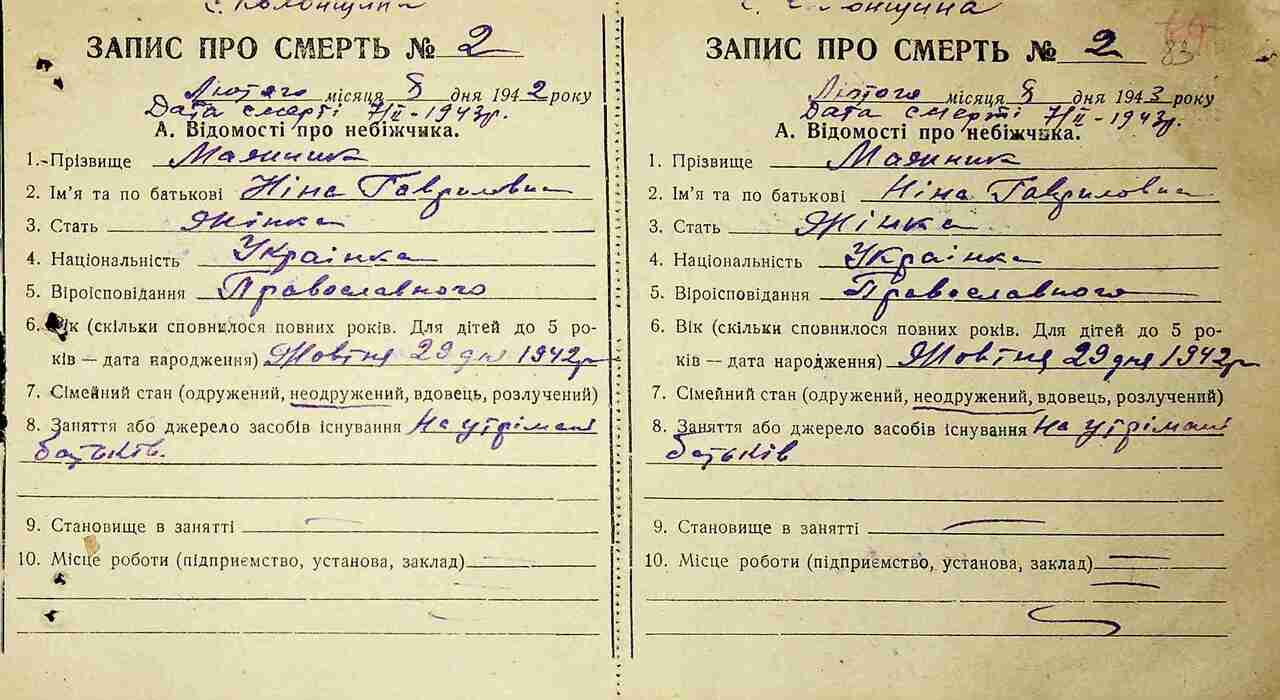 с. Колонщина
ЗАПИС ПРО СМЕРТЬ № 2
Лютого місяця 8 дня 1942 року
Дата смерті 7/II-1943р.
А. Відомості про небіжчика.
1. Прізвище
2. Ім'я та по батькові Ніна Гавриловна
3. Стать Жінка
4. Національність Українка
5. Віроісповідання Православного
6. Вік (скільки сповнилося повних років. Для дітей до 5 ро-
ків — дата народження) Жовтня 29 дня 1942р
7. Сімейний стан (одружений, неодружений, вдовець, розлучений)
8. Заняття або джерело засобів існування На утрімані
батьків.
9. Становище в занятті
10. Місце роботи (підприємство, установа, заклад)
с. Колонщина
ЗАПИС ПРО СМЕРТЬ № 2
83
Лютого місяця 8 дня 1943 року
Дата смерті 7/II-1943р.
А. Відомості про небіжчика.
1. Прізвище
2. Ім'я та по батькові Ніна Гавриловна
3. Стать Жінка
4. Національність Українка
5. Віроісповідання Православного
6. Вік (скільки сповнилося повних років. Для дітей до 5 ро-
ків — дата народження) Жовтня 29 дня 1942р
7. Сімейний стан (одружений, неодружений, вдовець, розлучений)
8. Заняття або джерело засобів існування На утрімані
батьків
9. Становище в занятті
10. Місце роботи (підприємство, установа, заклад)